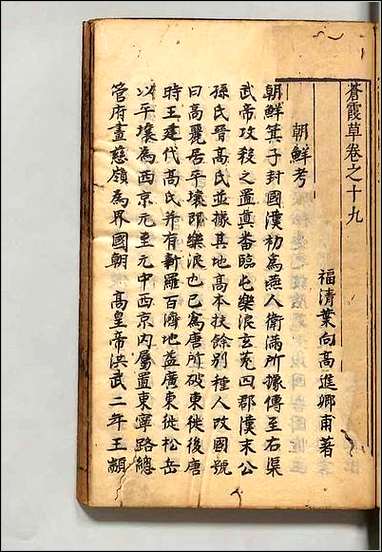 蒼霞草卷之十九
福清葉向高進卿甫著
朝鮮考
朝鮮箕子封國漢初為燕人衛滿所據傳至右渠
武帝攻殺之置真番臨屯樂浪玄菟四郡漢末公
孫氏晉高氏並據其地高本扶餘別種人改國號
曰高麗居平壤即樂浪也已為唐所破東徙後唐
時王建代高氏并有新羅百濟地益廣東徙松岳
以平壤為西京元至元中西京內屬置東寧路總
管府畫慈嶺為界國朝 高皇帝洪武二年王顓